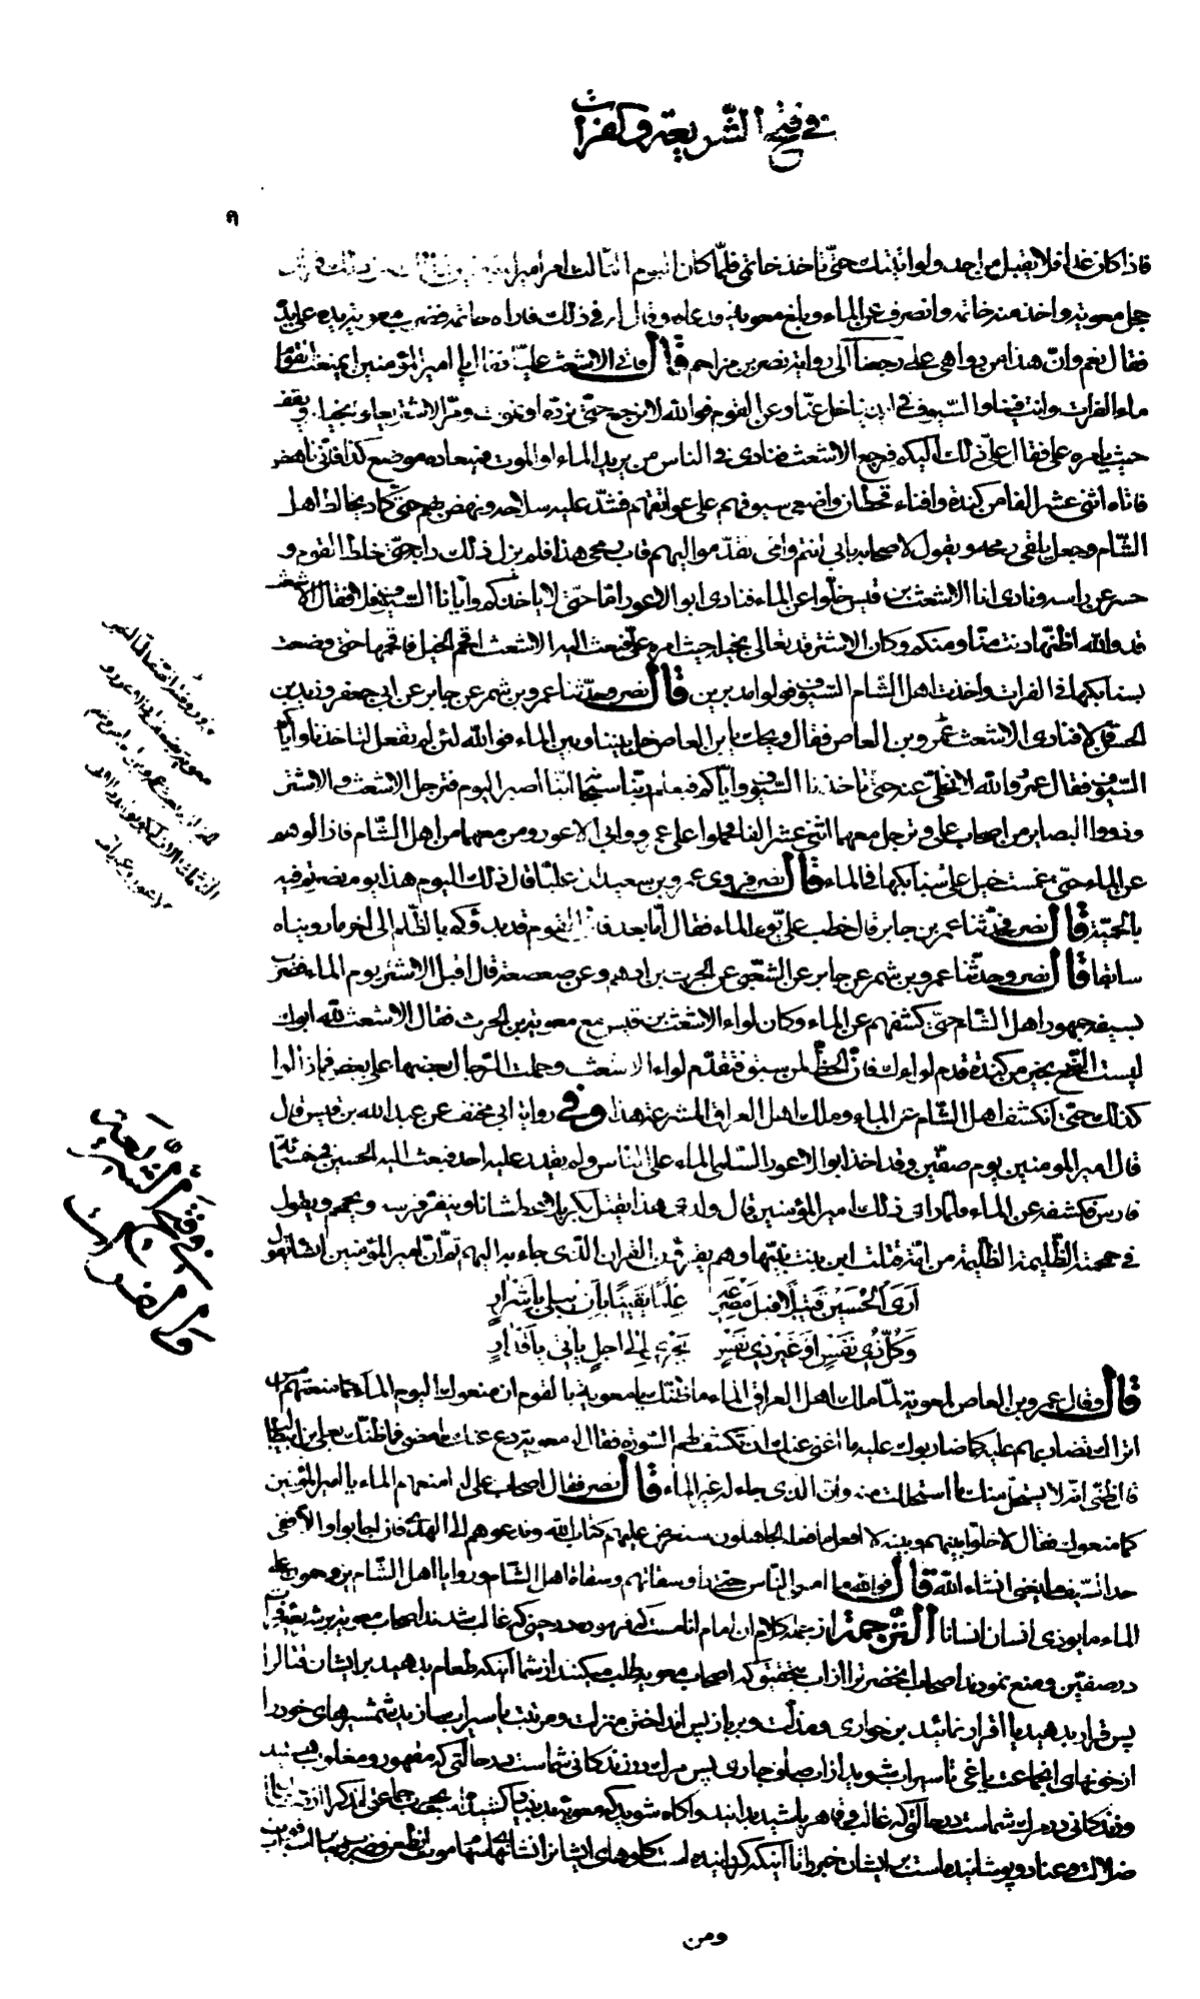 في فتح الشريعة والفرات
٩
فاذا كان غدا فلا يقبل من احد ولو اتيتك حتى تاخذ خاتمي فلما كان اليوم الثالث امر امير
حيل معوية واخذ منه خاتمه وانصرف عن الماء وبلغ معوية فدعاه وقال له في ذلك فاراه خاتمه فضرب معوية يده على يده
فقال نعم وان هذا من دواهي علي رجعنا الى رواية نصر بن مزاحم قال فاتى الاشعث عليا فقال يا امير المؤمنين ايمنعنا القوم
ماء الفرات وانت فينا والسيوف في ايدينا خل عنا وعن القوم فوالله لا نرجع حتى نرده او نموت ومر الاشتر يعلو بخيله ويقف
حيث يامره علي فقال علي ذلك اليكم فرجع الاشعث فنادى في الناس من يريد الماء او الموت فميعاده موضع كذا فاني ناهض
فاتاه اثنى عشر الفا من كندة وافناء قحطان واضعي سيوفهم على عواتقهم فشد عليه سلاحه ونهض بهم حتى كاد يخالط اهل
الشام وجعل يلقي رمحه ويقول لاصحابه بابي انتم وامي تقدموا اليهم قاب رمحي هذا فلم يزل ذلك دابه حتى خلط القوم و
حسر عن راسه ونادى انا الاشعث بن قيس خلوا عن الماء فنادى ابو الاعور اما حتى لا ياخذكم وايانا السيوف فلا فقال الاشعث
قد والله اظنها دنت منا ومنكم وكان الاشتر قد تعالى بخيله حيث امره علي فبعث اليه الاشعث اقحم الخيل فاقحمها حتى وضعت
بسنابكها في الفرات واخذت اهل الشام السيوف فولوا مدبرين قال نصر وحدثنا عمرو بن شمر عن جابر عن ابي جعفر وزيد بن
الحسن قالا فنادى الاشعث عمرو بن العاص فقال ويحك يا بن العاص خل بيننا وبين الماء فوالله لئن لم تفعل لتاخذنا واياكم
السيوف فقال عمرو والله لا نخلي عنه حتى تاخذنا السيوف واياكم فيعلم ربنا سبحانه اينا اصبر اليوم فترجل الاشعث والاشتر
وذووا البصاير من اصحاب علي وترجل معهما اثنى عشر الفا فحملوا على عمرو وابي الاعور ومن معهما من اهل الشام فازالوهم
عن الماء حتى غمست خيل علي سنابكها في الماء قال نصر فروى عمرو بن سعيد ان عليا قال ذلك اليوم هذا يوم نصرتم فيه
بالحمية قال نصر فحدثنا عمر بن جابر قال خطب علي يوم الماء فقال اما بعد فان القوم قد بدؤكم بالظلم الى اخر ما رويناه
سابقا قال نصر وحدثنا عمرو بن شمر عن جابر عن الشعبي عن الحرث بن ادهم وعن صعصعة قال اقبل الاشتر يوم الماء فضرب
بسيفه جمهور اهل الشام حتى كشفهم عن الماء وكان لواء الاشعث بن قيس مع معوية بن الحرث فقال الاشعث لله ابوك
ليست النخع بخير من كندة قدم لواءك فان الحظ لمن سبق فتقدم لواء الاشعث وحملت الرجال بعضها على بعض فما زالوا
كذلك حتى انكشف اهل الشام عن الماء وملك اهل العراق المشرعة هذا وفي رواية ابي مخنف عن عبد الله بن قيس قال
قال امير المؤمنين يوم صفين وقد اخذ ابو الاعور السلمي الماء على الناس ولم يقدر عليه احد فبعث اليه الحسين في خمسمائة
فارس فكشفه عن الماء فلما راى ذلك امير المؤمنين قال ولدي هذا يقتل بكربلا عطشانا وينفر فرسه ويحمحم ويقول
في حمحمته الظليمة الظليمة من امة قتلت ابن بنت نبيها وهم يقرؤن القران الذي جاء به اليهم ثم ان امير المؤمنين انشا يقول
ارى الحسين قتيلا قبل مصرعه علما يقينا بان يبلى باشرار
وكل ذي نفس او غير ذي نفس يجري الى اجل ياتي باقدار
قال وقال عمرو بن العاص لمعوية لما ملك اهل العراق الماء ما ظنك يا معوية بالقوم ان منعوك اليوم الماء كما منعتهم امس
اتراك تضاربهم عليه كما ضاربوك عليه ما اغنى عنك ان تكشف لهم السوءة فقال له معوية دع عنك ما مضى فما ظنك بعلي ابن ابيطالب
قال ظني انه لا يستحل منك ما استحللت منه وان الذي جاء له غير الماء قال نصر فقال اصحاب علي له امنعهم الماء يا امير المؤمنين
كما منعوك فقال لا خلوا بينهم وبينه لا افعل ما فعله الجاهلون سنعرض عليهم كتاب الله وندعوهم الى الهدى فان اجابوا والا ففي
حد السيف ما يغني انشاء الله قال فوالله ما امسى الناس حتى راوا سقاتهم وسقاة اهل الشام وروايا اهل الشام يزدحمون على
الماء ما يوذي انسان انسانا الترجمة از جمله كلام ان امام انام است كه فرموده در حيني كه غالب شدند اصحاب معوية بر شريعه فرات
در صفين ومنع نمودند اصحاب انحضرت را از اب بتحقيق كه اصحاب معويه طلب ميكنند از شما اينكه طعام بدهيد بر ايشان قتال را
پس قرار بدهيد يا اقرار نمائيد بر خواري ومذلت وبر باز پس انداختن منزلت ومرتبت يا سيراب سازيد شمشيرهاي خود را
از خونهاي اين جماعت ياغي تا سيراب شويد از اب صاف جاري پس مرگ در زندكاني شماست در حالتي كه مقهور ومغلوب هستيد
وزندكاني در مرگ شماست در حالتي كه غالب وقاهر باشيد بدانيد واكاه شويد كه معويه
ضلالت وعناد وپوشانيده است بر ايشان خبر را تا اينكه كردانيده است كلوهاي ايشانرا نشانهاي
ومن
في فتح الشريعة
والفرات